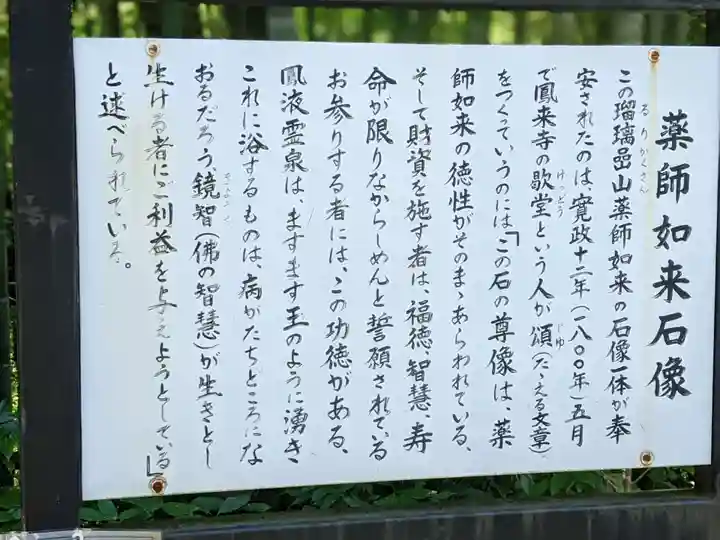 薬師如来石像
この瑠璃嵒山薬師如来の石像一体が奉
るりがくさん
安されたのは、寛政十二年(一八〇〇年)五月
で鳳来寺の歇堂という人が頌(たゝえる文章)
けつどう
じゆ
をつくっていうのには「この石の尊像は、薬
師如来の徳性がそのまゝあらわれている、
そして財資を施す者は、福徳、智慧、寿
命が限りなからしめんと誓願されている
お参りする者には、この功徳がある、
鳳液霊泉は、ますます玉のように湧き
これに浴するものは、病がたちどころにな
おるだろう、鏡智(佛の智慧)が生きとし
生ける者にご利益を与えようとしている」
と述べられている。